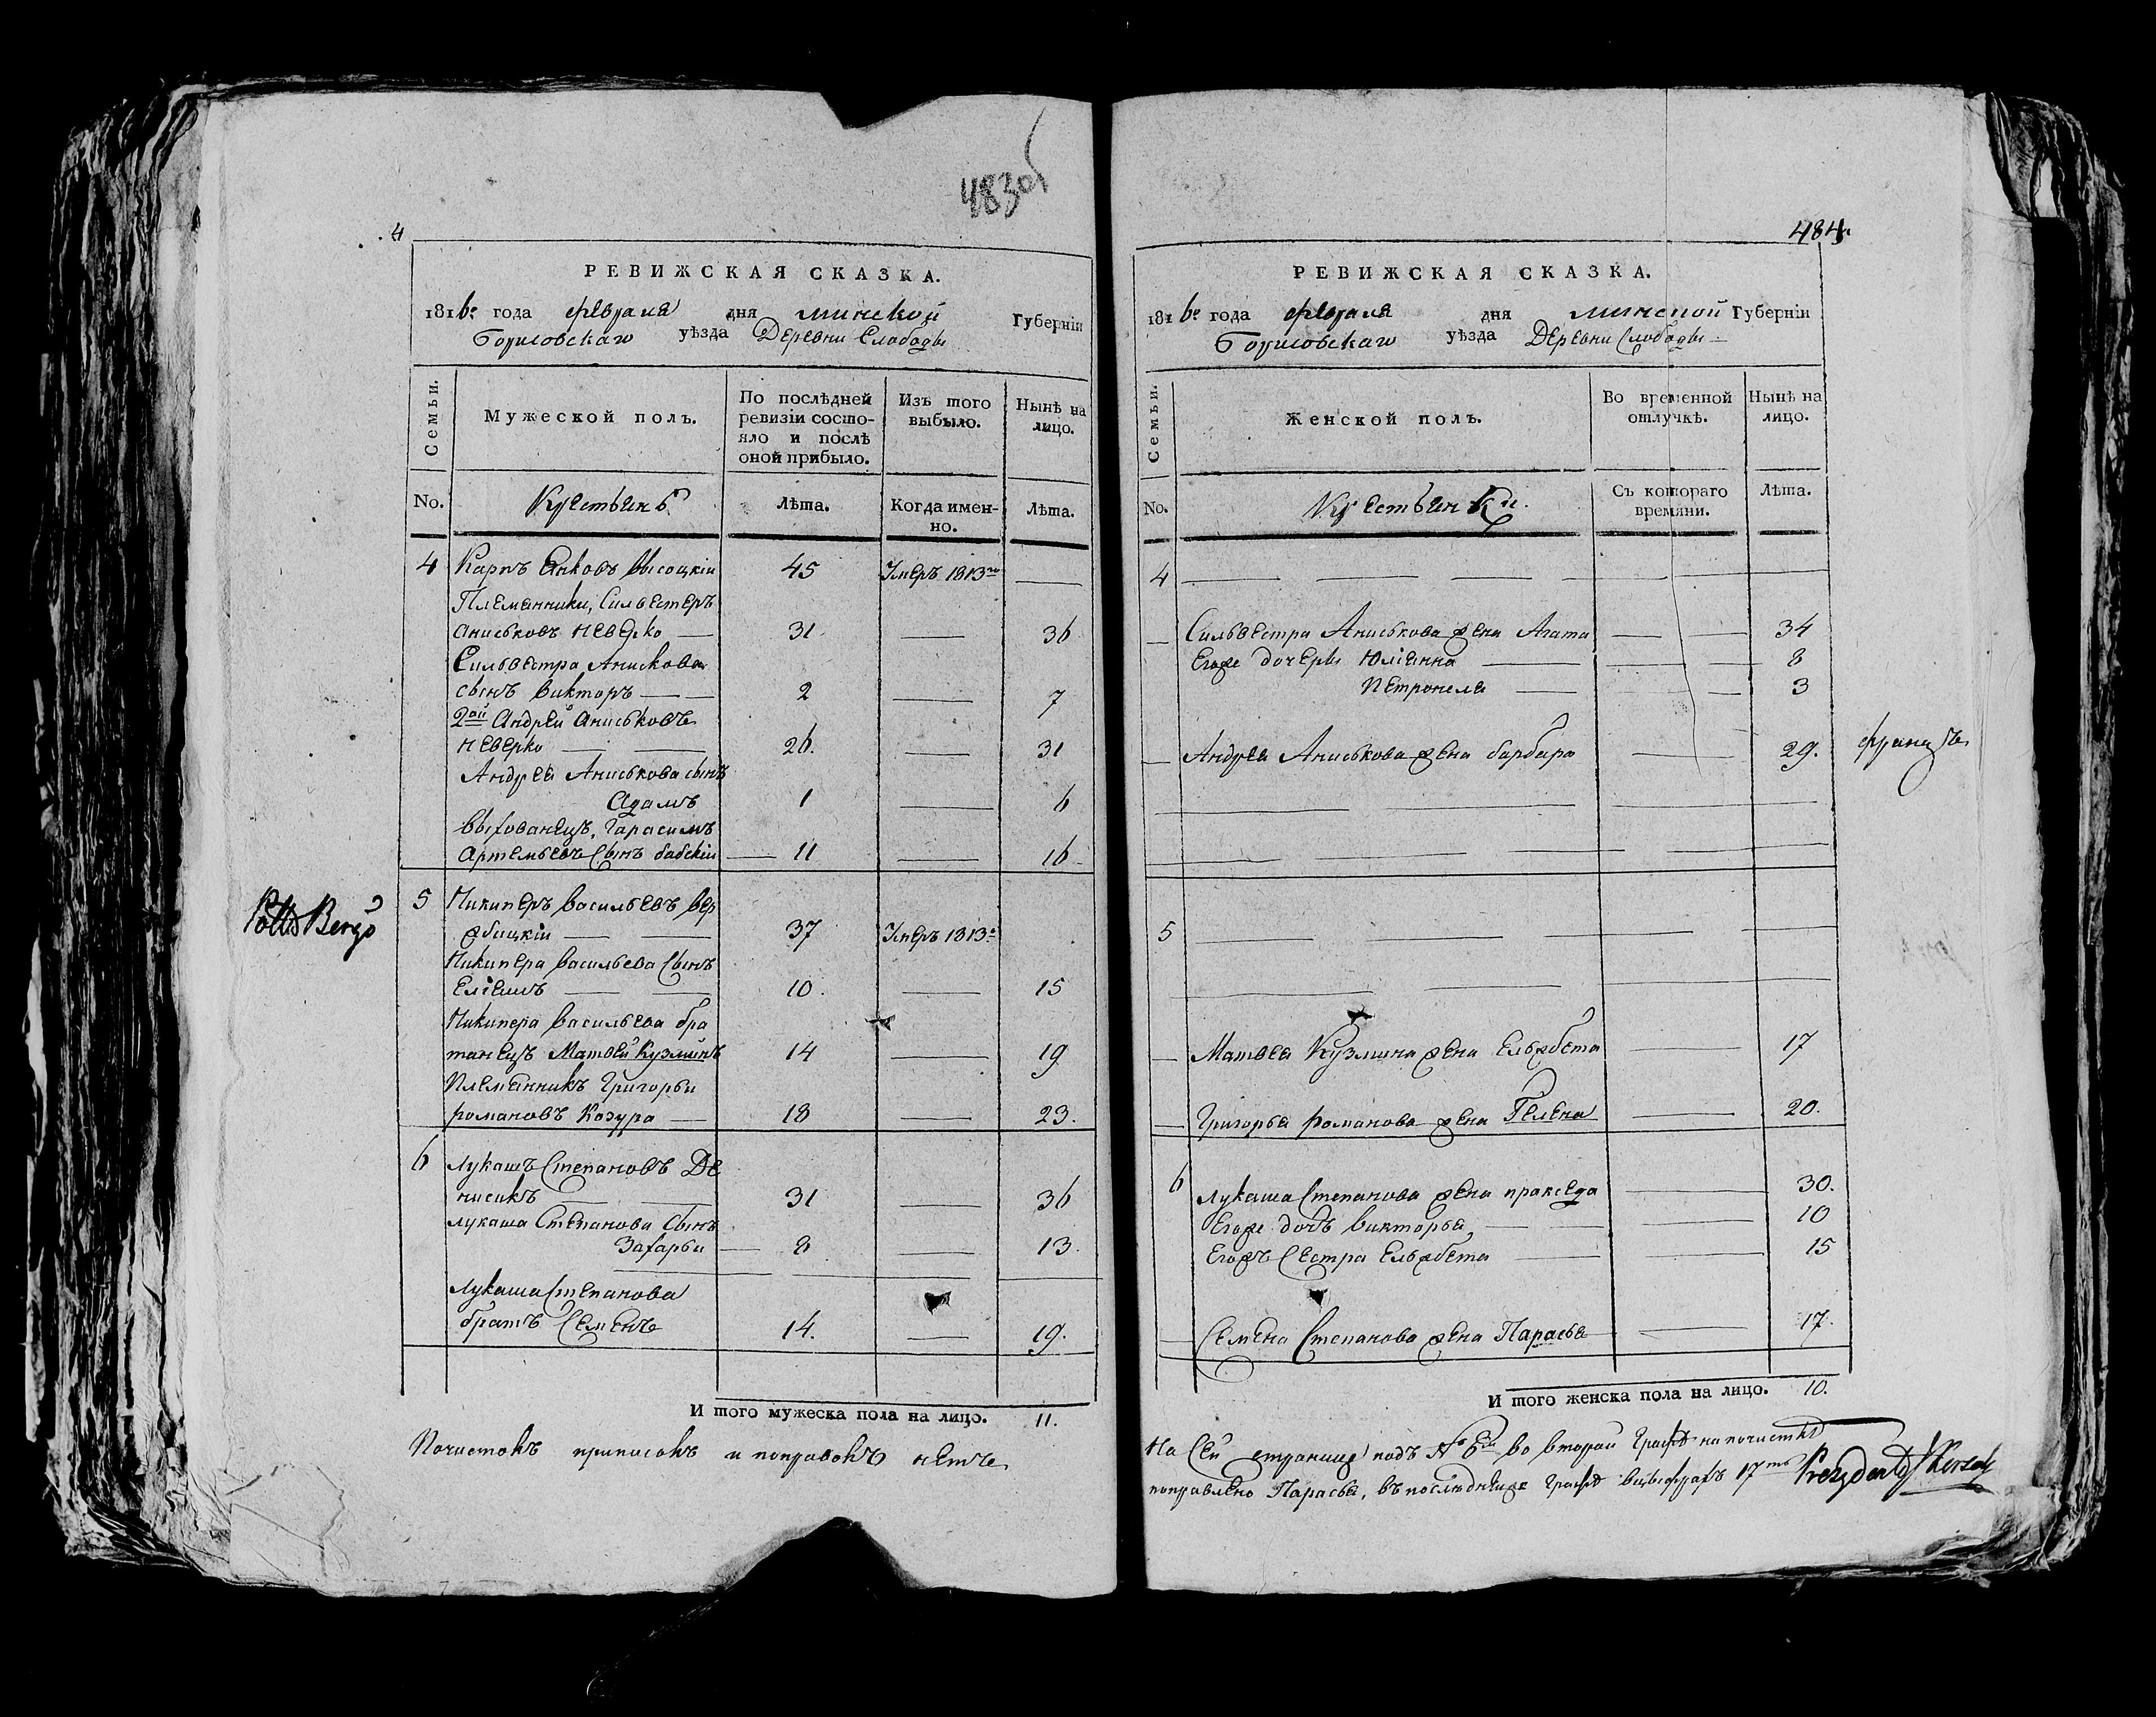 483об
4
РЕВИЖСКАЯ СКАЗКА.
1816го года февраля дня Минской Губерніи
Борисовскаго уѣзда Деревни Слободы
Семьи.
Мужеской полъ.
По послѣдней ревизіи состояло и послѣ оной прибыло.
Изъ того выбыло.
Нынѣ на лицо.
No. Крестьянъ Лѣта. Когда именно. Лѣта.
4 Карпъ Янковъ Высоцкій 45 Умеръ 1813го —
Племянники, Сильвестеръ
Аниськовъ Неверко — 31 — 36
Сильвестра Аниськова
сынъ Викторъ — — 2 — 7
2ой Андрей Аниськовъ
Неверко — — 26. — 31
Андрея Аниськова сынъ
Адамъ 1 — 6
Выхованецъ, Гарасимъ
Артемьевъ Сынъ бабскій — 11 — 16
5 Никиперъ Васильевъ Вер
жбицкій — — 37 Умеръ 1813го
Никипера Васильева Сынъ
Еліяшъ — — 10. — 15
Никипера Васильева бра
танецъ Матвей Кузминъ 14 — 19
Племянникъ Григорьи
Романовъ Козура — 18 — 23.
6 Лукашъ Степановъ Де
нисикъ — — 31 — 36
Лукаша Степанова Сынъ
Захарьи — 8 — 13.
Лукаша Степанова
братъ Семенъ 14. — 19.
И того мужеска пола на лицо. 11.
Почистокъ приписокъ и поправокъ нетъ
484.
РЕВИЖСКАЯ СКАЗКА.
1816го года февраля дня Минской Губерніи
Борисовскаго уѣзда Деревни Слободы
Семьи.
Женской полъ.
Во временной отлучкѣ.
Нынѣ на лицо.
No. Крестьянки. Съ котораго времяни. Лѣта.
4 — — — — —
— Сильвестра Аниськова жена Агата — — 34
Егоже дочеры Юліянна — — — 8
Петронеля — — — 3
— Андрея Аниськова жена Барбара — 29.
5 — — — —
— Матвея Кузмина жена Ельжбета — 17
— Григорья Романова жена Гелена — 20.
6 Лукаша Степанова жена Пракседа — 30.
Егоже дочъ Викторыя, — — 10
Егожъ Сестра Ельжбета — — 15
— Семена Степанова жена Парасья — 17.
И того женска пола на лицо. 10.
На Сей странице подъ No 6м во второй Графе на почистке
поправлено Парасья, въ последнейже Графе 17ть